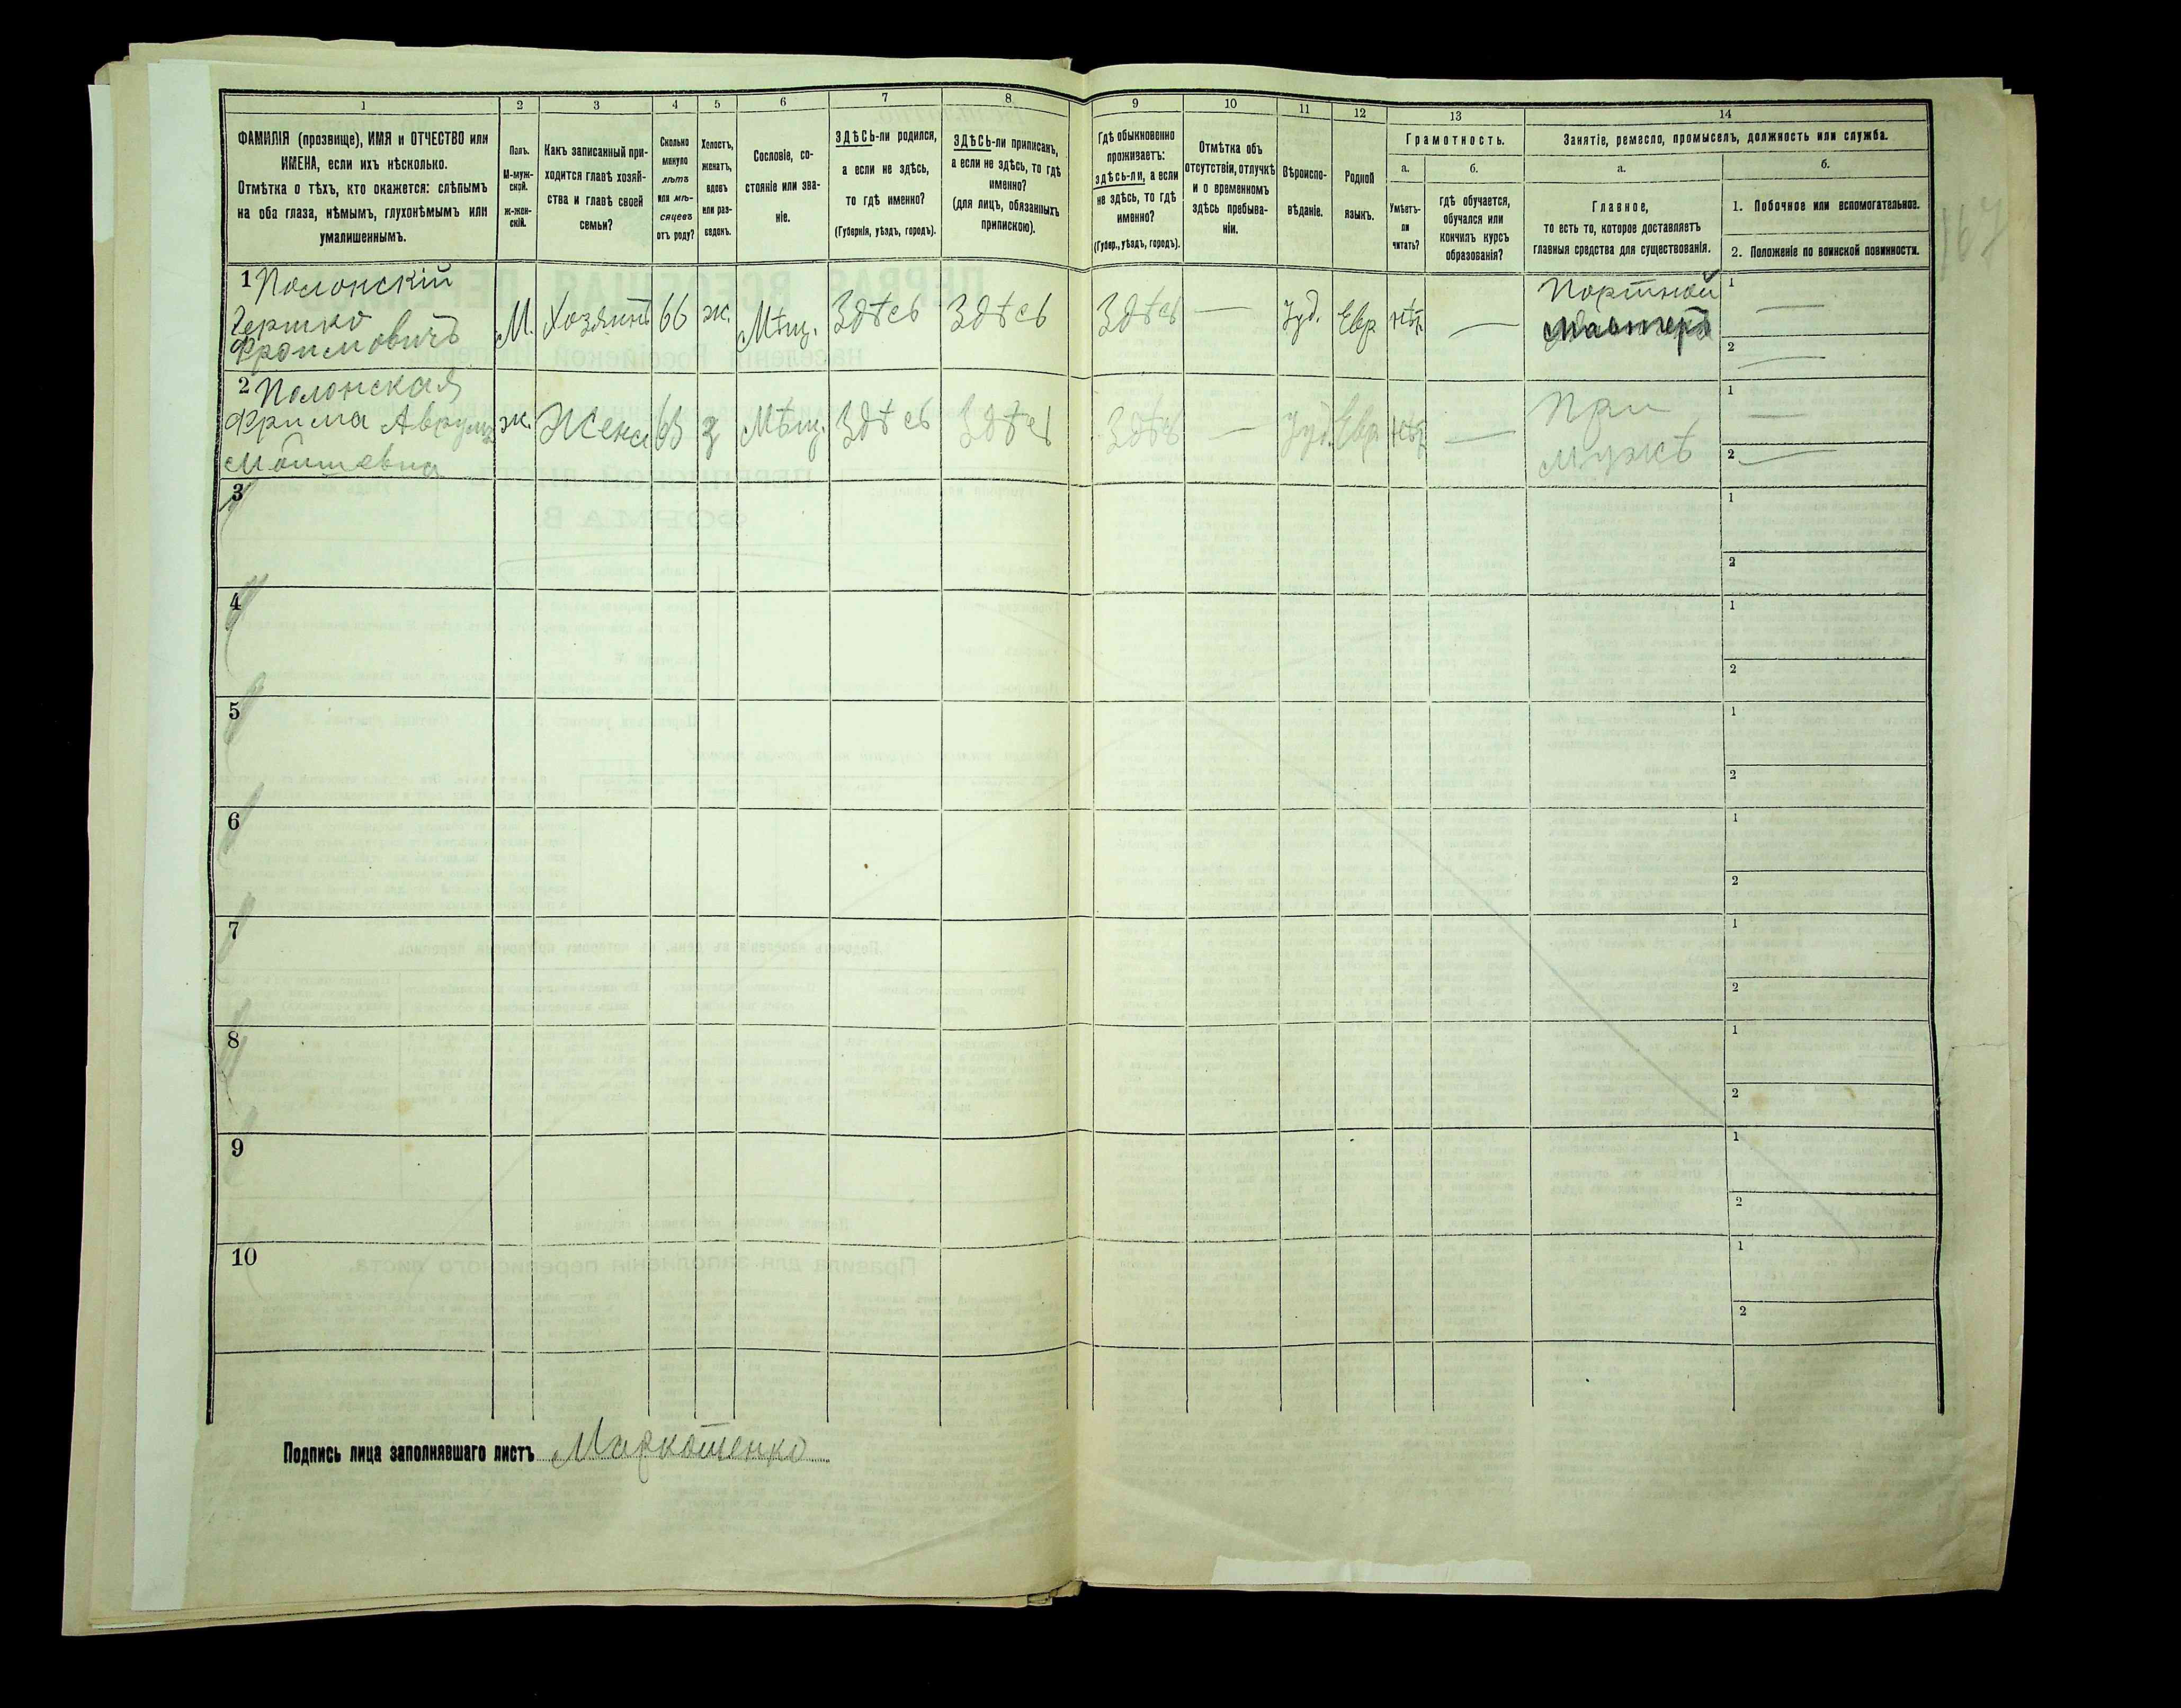 1 2 3 4 5 6 7 8 9 10 11 12 13 14
ФАМИЛІЯ (прозвище), ИМЯ и ОТЧЕСТВО или
ИМЕНА, если ихъ нѣсколько.
Отмѣтка о тѣхъ, кто окажется: слѣпымъ
на оба глаза, нѣмымъ, глухонѣмымъ или
умалишеннымъ.
Полъ.
М-муж-
ской.
ж-жен-
скій.
Какъ записанный при-
ходится главѣ хозяй-
ства и главѣ своей
семьи?
Сколько
минуло
лѣтъ
или мѣ-
сяцевъ
отъ роду?
Холостъ,
женатъ,
вдовъ
или раз-
веденъ.
Сословіе, со-
стояніе или зва-
ніе.
ЗДѢСЬ-ли родился,
а если не здѣсь,
то гдѣ именно?
(Губернія, уѣздъ, городъ).
ЗДѢСЬ-ли приписанъ,
а если не здѣсь, то гдѣ
именно?
(для лицъ, обязанныхъ
припискою).
Гдѣ обыкновенно
проживаетъ:
здѣсь-ли, а если
не здѣсь, то гдѣ
именно?
(Губер., уѣздъ, городъ).
Отмѣтка объ
отсутствіи, отлучкѣ
и о временномъ
здѣсь пребыва-
ніи.
Вѣроиспо-
вѣданіе.
Родной
языкъ.
Грамотность.
а.
Умѣетъ-
ли
читать?
б.
гдѣ обучается,
обучался или
кончилъ курсъ
образованія?
Занятіе, ремесло, промыселъ, должность или служба.
а.
Главное,
то есть то, которое доставляетъ
главныя средства для существованія.
б.
1. Побочное или вспомогательное.
2. Положеніе по воинской повинности.
167
1 Полонскій
Гершко
Фроимовичъ
М. Хозяинъ 66 ж. Мѣщ. Здѣсь Здѣсь Здѣсь — Іуд. Евр нѣт. —
Портной
1 —
2 —
2 Полонская
Фрима Аврумъ
Мошевна
ж. Жена 63 з Мѣщ. Здѣсь Здѣсь Здѣсь — Іуд. Евр нѣт —
При
мужѣ
1 —
2 —
3
1
2
4
1
2
5
1
2
6
1
2
7
1
2
8
1
2
9
1
2
10
1
2
Подпись лица заполнявшаго листъ Маркотенко